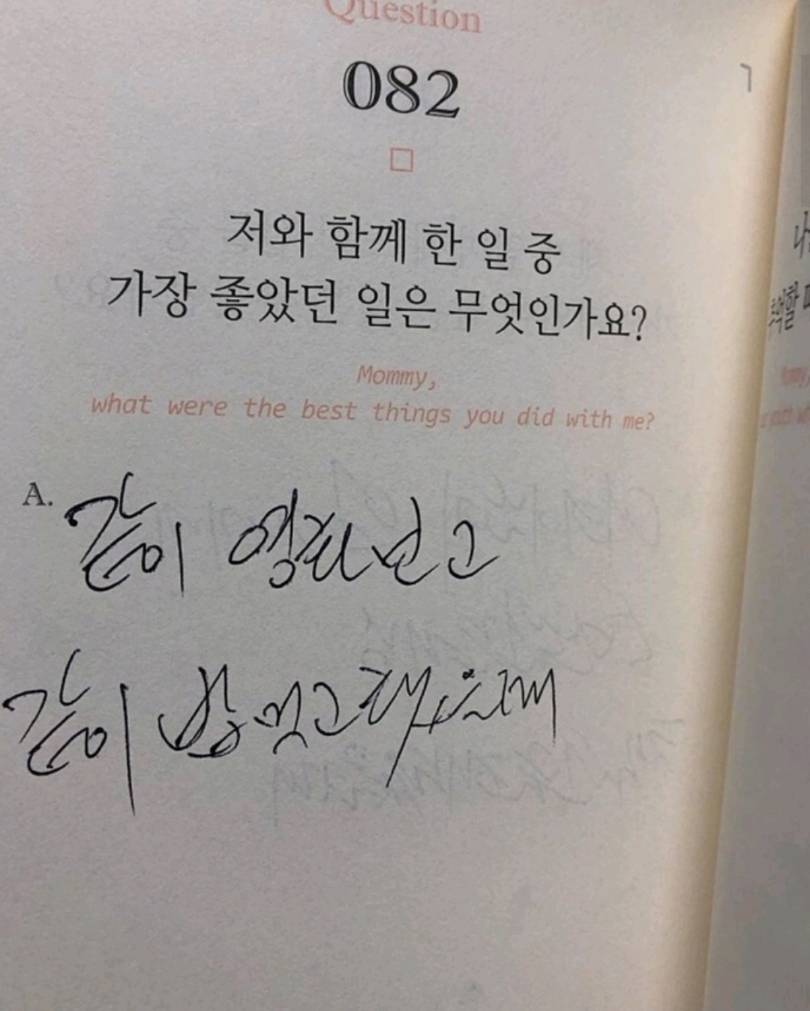 Question
082
저와 함께 한 일 중
가장 좋았던 일은 무엇인가요?
Mommy,
what were the best things you did with me?
A. 같이 영화보고
같이 밥먹고 했을때